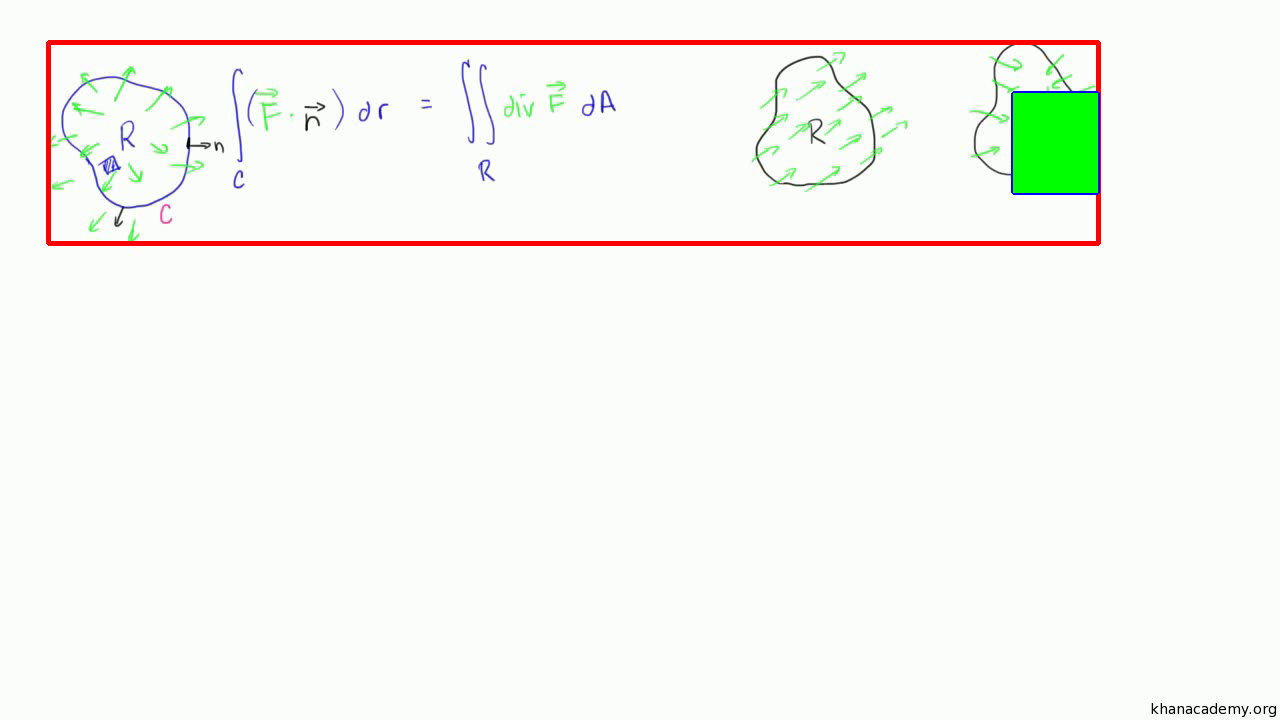 R n C
∫ ( F⃗ · n⃗ ) dr = ∬ div F⃗ dA
C R
R
khanacademy.org